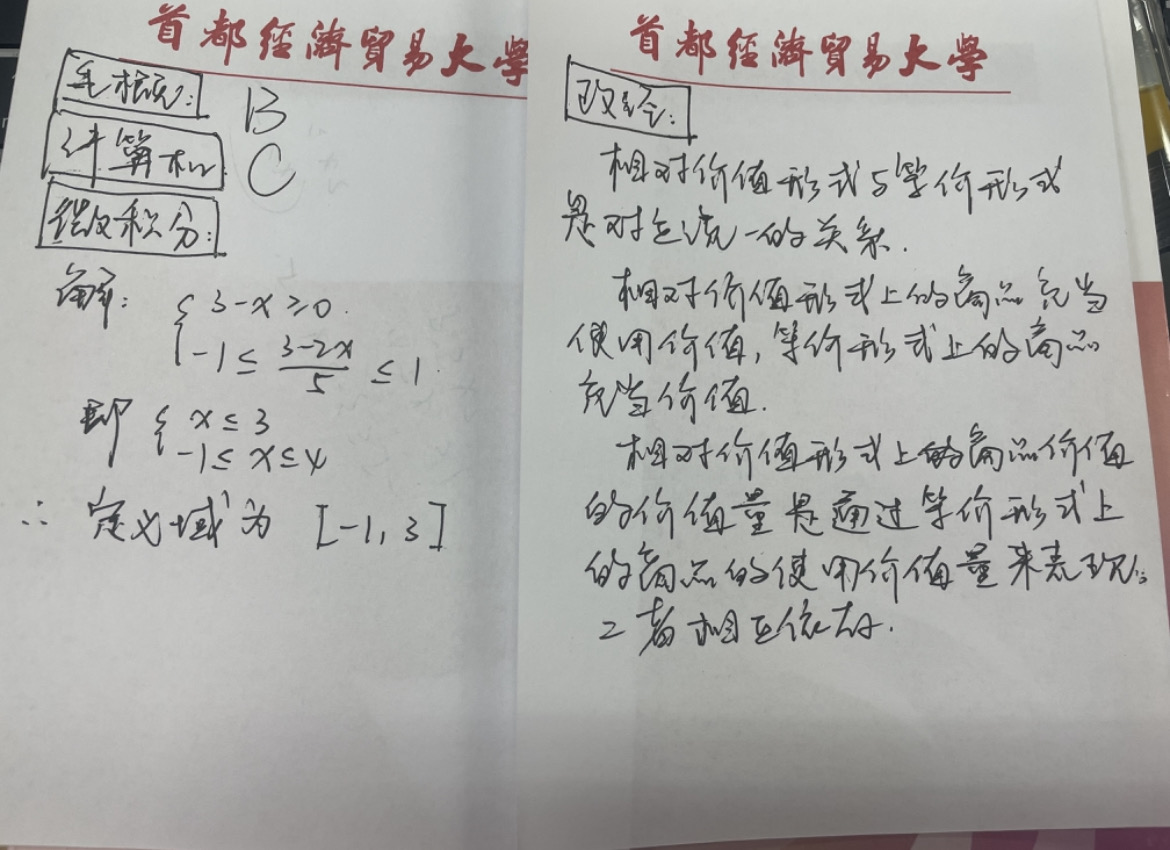 首都經濟貿易大學
毛概:
B
计算机
C
微积分:
解: { 3-x≥0.
-1 ≤ (3-2x)/5 ≤ 1.
即 { x≤3
-1≤x≤4
∴ 定义域为 [-1, 3]
首都經濟貿易大學
政经:
相对价值形式与等价形式
是对立统一的关系.
相对价值形式上的商品充当
使用价值, 等价形式上的商品
充当价值.
相对价值形式上的商品价值
的价值量是通过等价形式上
的商品的使用价值量来表现.
二者相互依存.